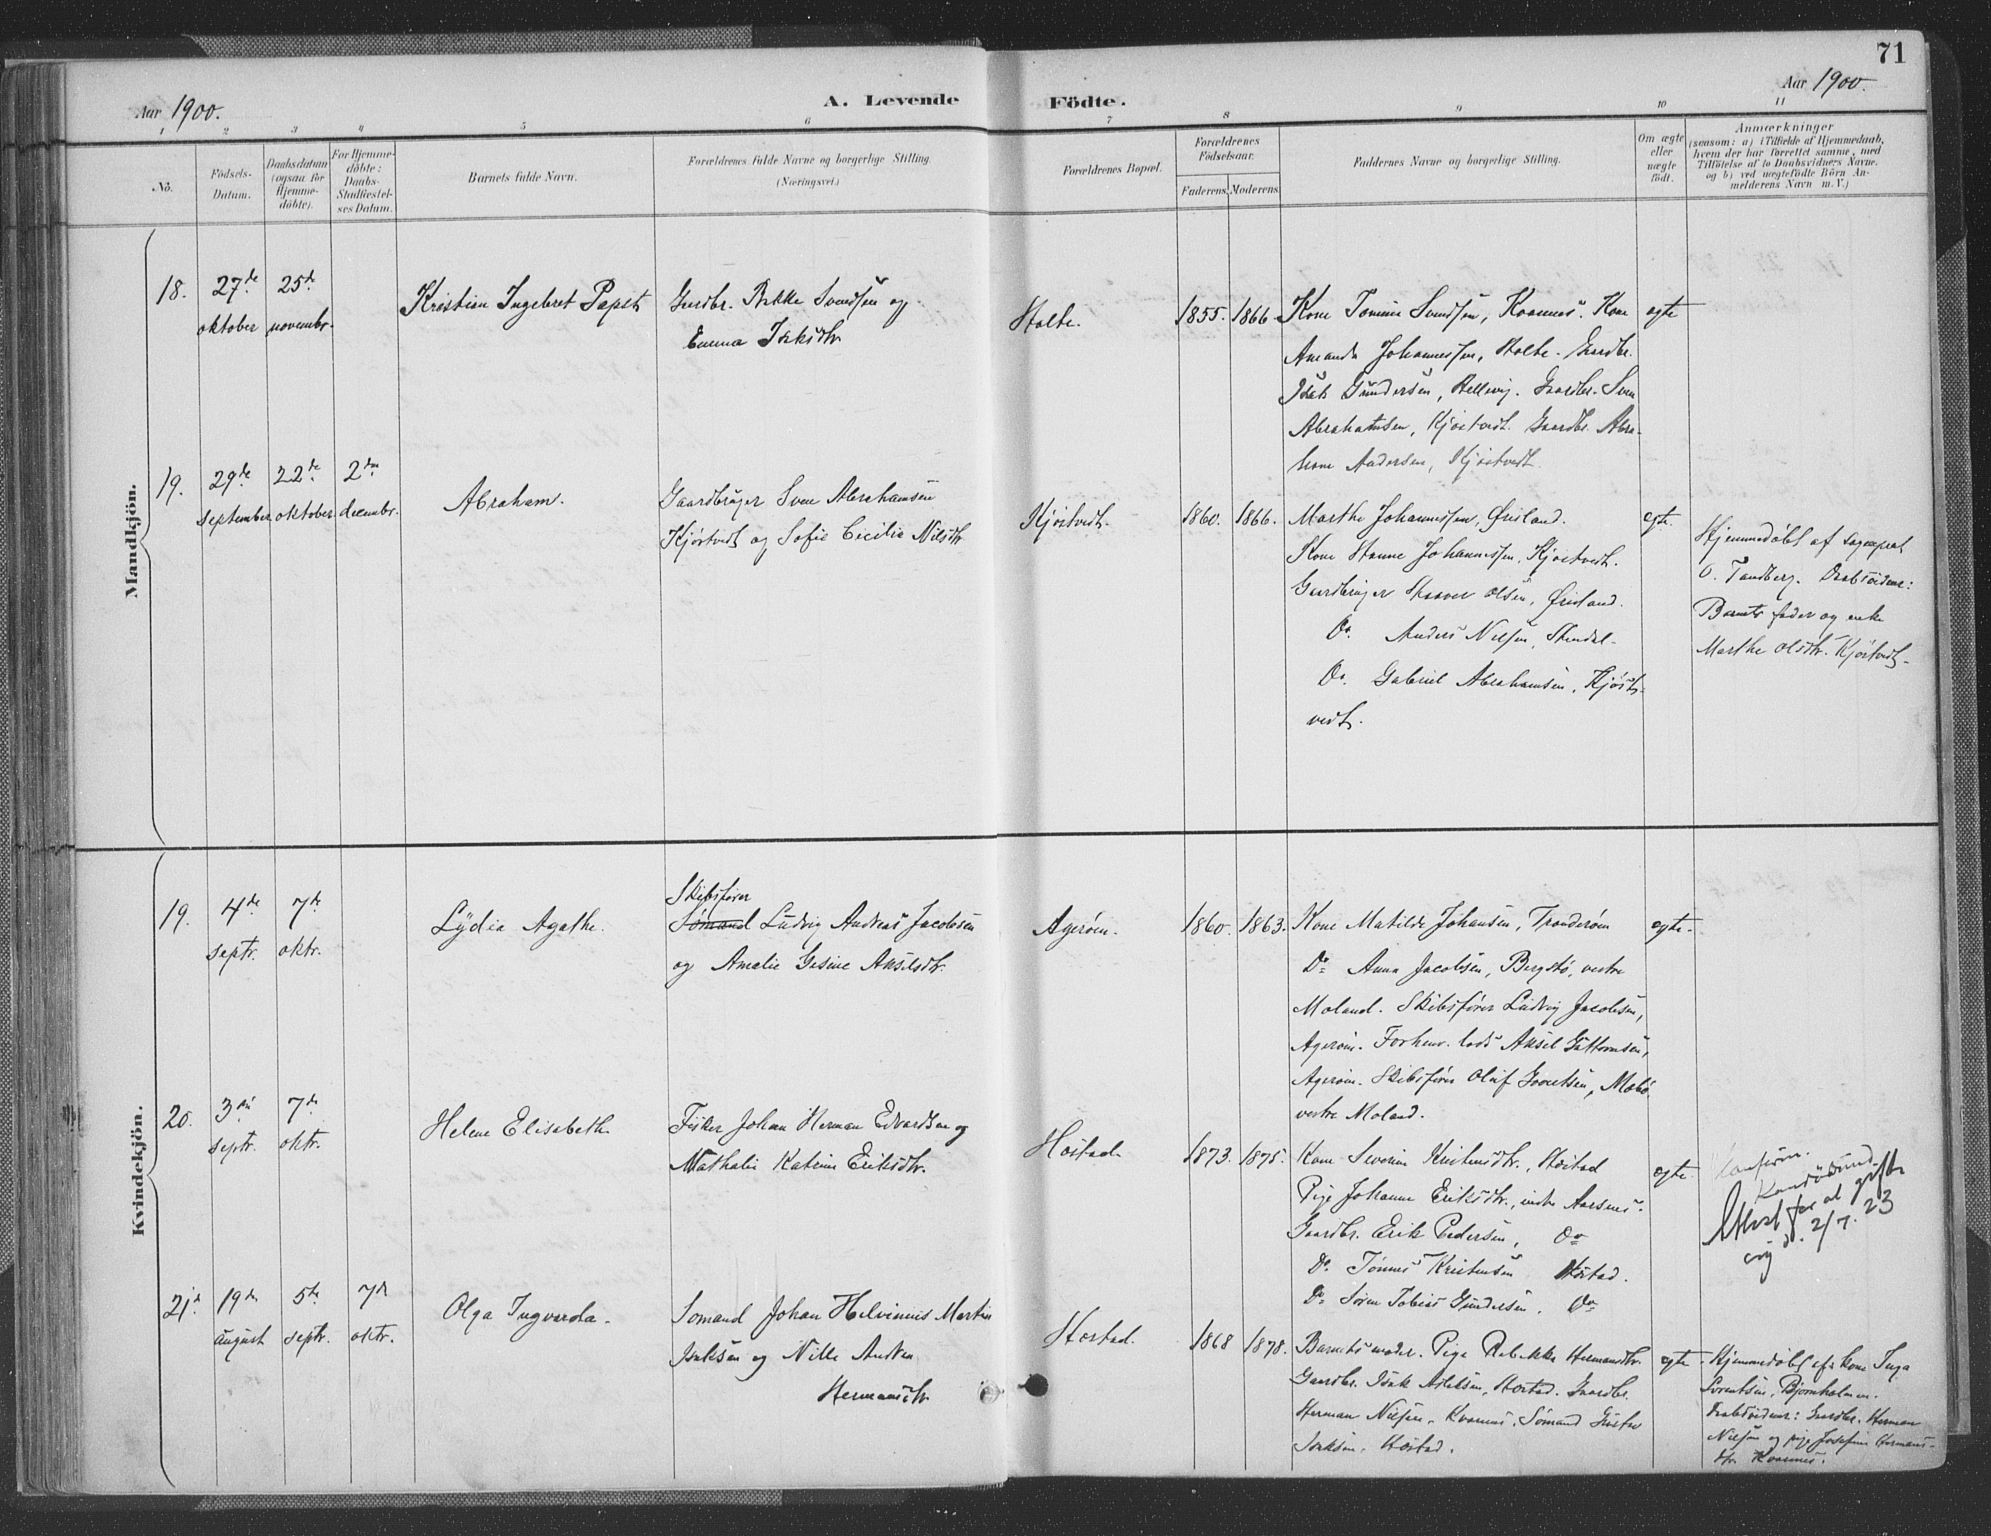 71
Aar 1900.
A. Levende
Födte.
Aar 1900.
1
2
3
4
5
6
7
8
9
10
11
No.
Födsels-
Datum.
Daabsdatum
(ogsaa for
Hjemme-
döbte).
For Hjemme-
döbte:
Daabs-
Stadfæstel-
ses Datum.
Barnets fulde Navn.
Forældrenes fulde Navne og borgerlige Stilling.
(Næringsvei.)
Forældrenes Bopæl.
Forældrenes
Födselsaar.
Faderens.
Moderens.
Faddernes Navne og borgerlige Stilling.
Om ægte
eller
uægte
födt.
Anmærkninger
(saasom: a) i Tilfælde af Hjemmedaab,
hvem der har forrettet samme, med
Tilföielse af to Daabsvidners Navne.
og b) ved uægtefödte Börn An-
melderens Navn m. V.)
Mandkjön.
18.
27de
oktober
25de
novembr.
Kristian Ingebret
Gardbr. Svendsen og
Emma Isaksdtr
Holte.
1855.
1866.
Kone Svendsen, Kone
Amanda Johannessen, Holte. Gaardbr.
Isak Gundersen, Hellevig. Gaardbr. Sven
Abrahamsen, Kjöstvedt. Gaardbr. Abra-
ham Andersen, Kjöstvedt.
egte
19.
29de
september
22de
oktober
2den
decembr.
Abraham.
Gaardbruger Sven Abrahamsen
Kjöstvedt og Sofie Cecilie Nilsdtr
Kjöstvedt.
1860.
1866.
Marthe Johannessen, Örisland.
Kone Hanne Johannessen, Kjöstvedt.
Gaardbruger Olsen, Örisland.
Do. Anders Nilsen,
Do. Gabriel Abrahamsen, Kjöst-
vedt.
egte.
Hjemmedöbt af sogneprest
O. Tandberg. Daabsvidner:
Barnets fader og enke
Marthe Olsdtr. Kjöstvedt.
Kvindekjön.
19.
4de
septr.
7de
oktr.
Lydia Agathe.
Skibsförer
Sömand Ludvig Andreas Jacobsen
og Amalie Gesine Akselsdtr.
Ageröen.
1860.
1863.
Kone Matilde Johansen, Tronderöen
Do Anna Jacobsen, Bergstö, vestre
Moland. Skibsförer Ludvig Jacobsen,
Ageröen. Forhenv. lods Aksel Guttormsen,
Ageröen. Skibsförer Oluf
vestre Moland.
egte.
20.
3die
septr.
7de
oktr.
Helene Elisabeth.
Fisker Johan Herman Edvardsen og
Nathalie Katrine Eriksdtr.
Höstad.
1873.
1875.
Kone Severine Kristensdtr., Höstad
Pige Johanne Eriksdtr., indre Aarsnes.
Gaardbr. Erik Pedersen, Do
Do. Tönnes Kristensen Höstad.
Do Sören Tobias Gundersen. Do
egte.
Attest for at gifte
sig d. 2/7. 23
21.
19de
august
5te
septr.
7de
oktr.
Olga Ingvarda.
Sömand Johan Helvinius Martin
Isaksen og Nille Andrea
Hermansdtr.
Höstad.
1868
1878.
Barnets moder. Pige Rebekka Hermansdtr.
Gaardbr. Isak Höstad. Gaardbr.
Herman Nilsen, Kvannes. Sömand Gustav
Isaksen, Höstad.
egte.
Hjemmedöbt af: kone Inga
Sörensen, Bjornholmen.
Daabsvidner: Gaardbr. Herman
Nilsen og pige Josefine Hermans-
dtr. Kvannes.